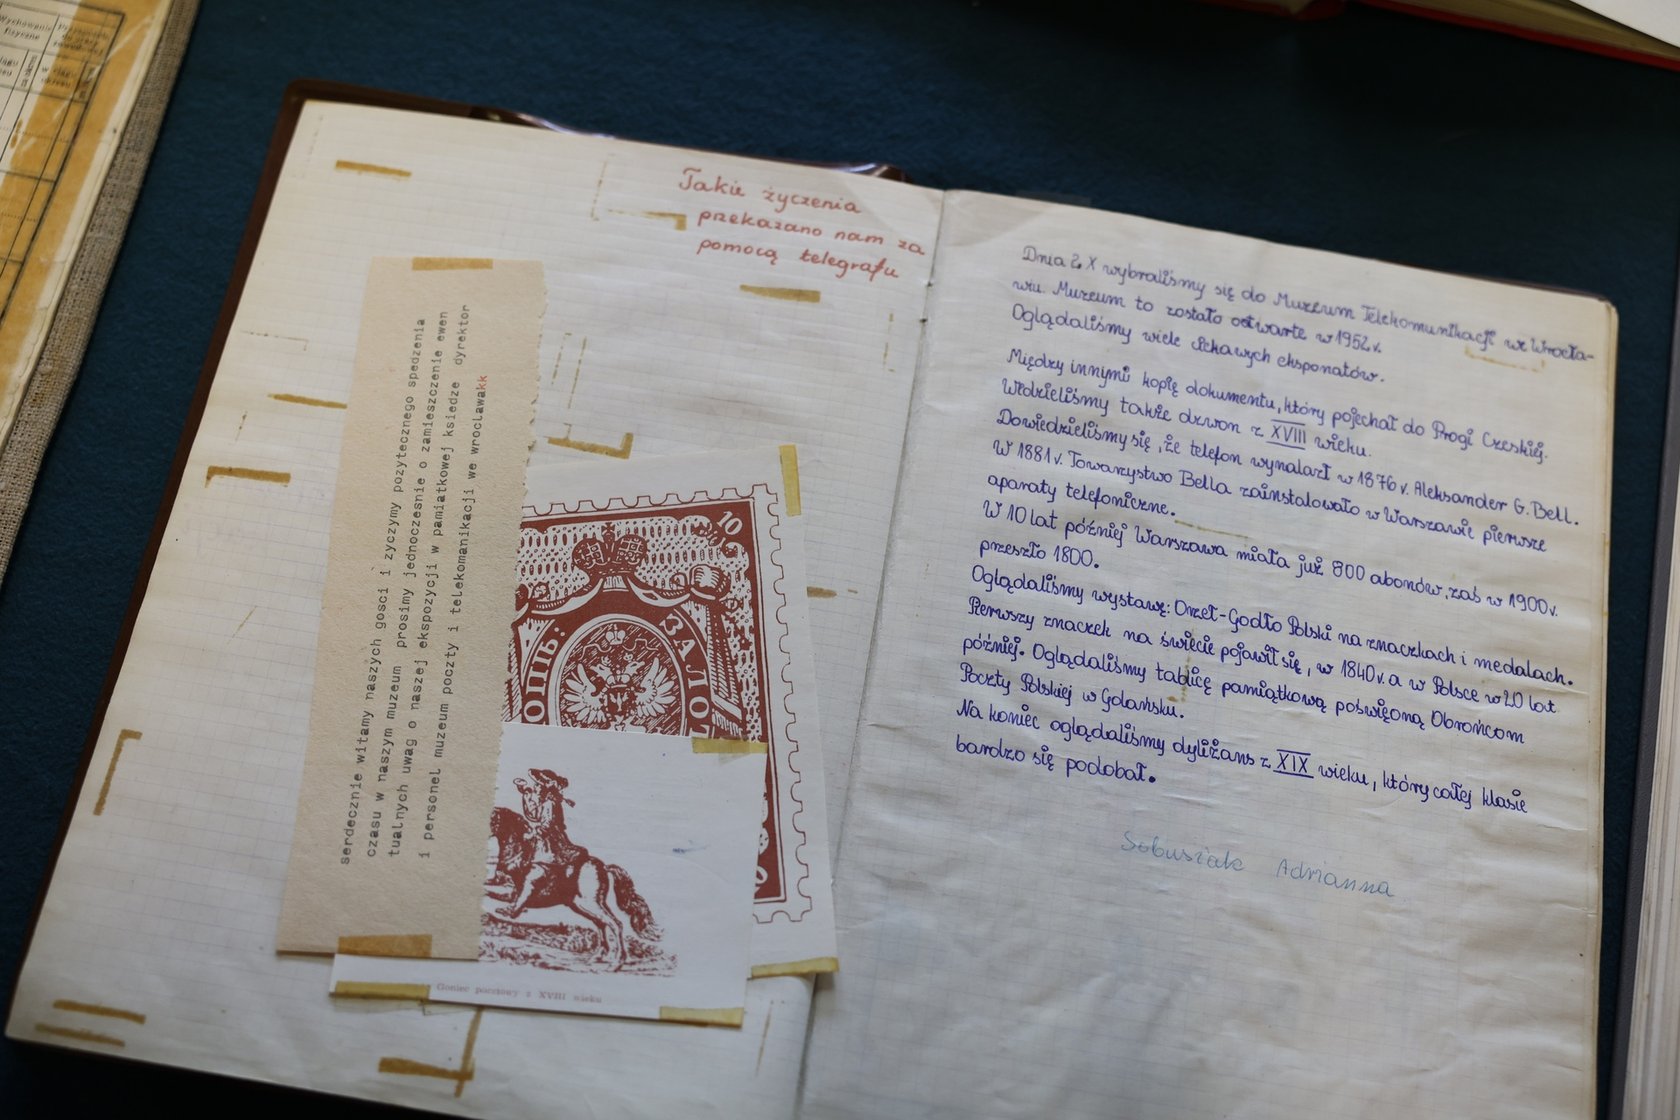 Wychowanie
fizyczne
Takie życzenia
przekazano nam za
pomocą telegrafu
serdecznie witamy naszych gosci i zyczymy pozytecznego spedzenia
czasu w naszym muzeum prosimy jednoczesnie o zamieszczenie ewen
tualnych uwag o naszej ekspozycji w pamiatkowej ksiedze dyrektor
i personel muzeum poczty i telekomanikacji we wroclawakk
10
ОПЬ:
ЗАЛО
Goniec pocztowy z XVIII wieku
Dnia 2 X wybraliśmy się do Muzeum Telekomunikacji we Wrocła-
wiu. Muzeum to zostało otwarte w 1952 r.
Oglądaliśmy wiele ciekawych eksponatów.
Między innymi kopię dokumentu, który pojechał do Pragi Czeskiej.
Widzieliśmy także dzwon z XVIII wieku.
Dowiedzieliśmy się, że telefon wynalazł w 1876 r. Aleksander G. Bell.
W 1881 r. Towarzystwo Bella zainstalowało w Warszawie pierwsze
aparaty telefoniczne.
W 10 lat później Warszawa miała już 800 abonów, zaś w 1900 r.
przeszło 1800.
Oglądaliśmy wystawę: Orzeł-Godło Polski na znaczkach i medalach.
Pierwszy znaczek na świecie pojawił się, w 1840 r. a w Polsce w 20 lat
później. Oglądaliśmy tablicę pamiątkową poświęconą Obrońcom
Poczty Polskiej w Gdańsku.
Na koniec oglądaliśmy dyliżans z XIX wieku, który całej klasie
bardzo się podobał.
Sobusiak Adrianna